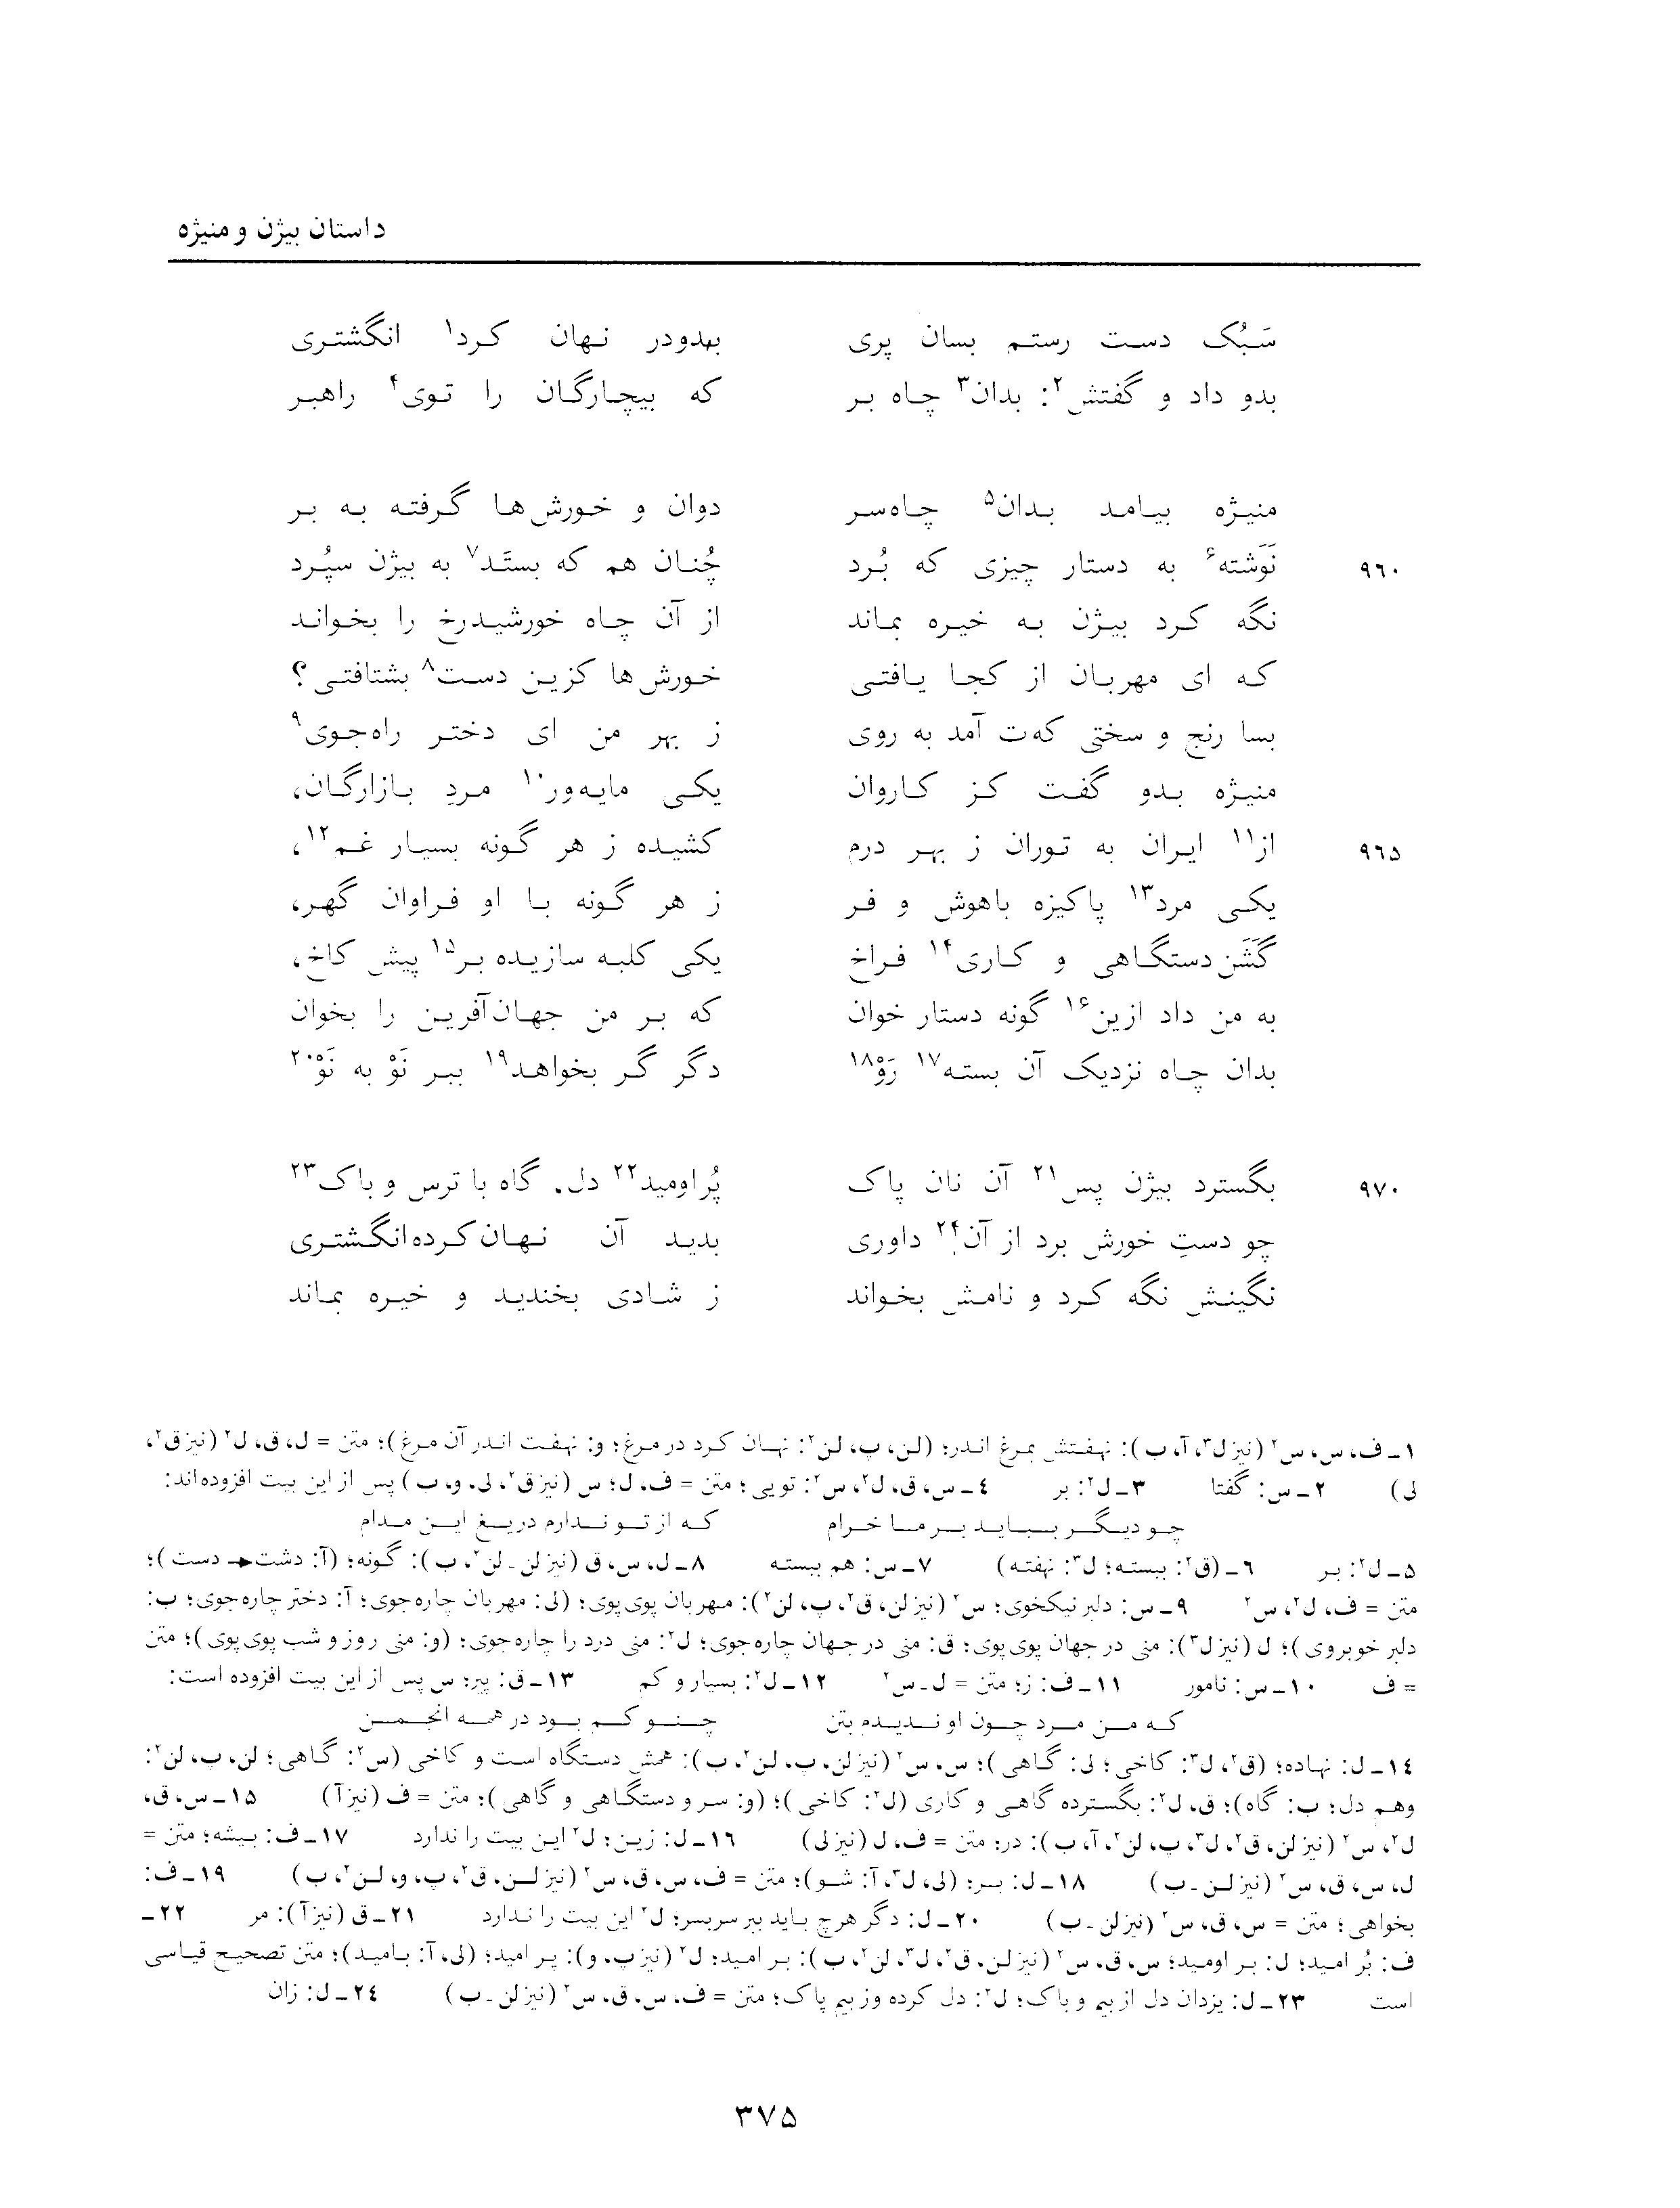 داستان بیژن و منیژه
سَبُک دست رستم بسان پری بهدودر نهان کرد۱ انگشتری
بدو داد و گفتش۲: بدان۳ چاه بر که بیچارگان را توی۴ راهبر
منیژه بیامد بدان۵ چاه‌سر دوان و خورش‌ها گرفته به بر
۹۶۰ نَوَشته۶ به دستار چیزی که بُرد چُنان هم که بستَد۷ به بیژن سپُرد
نگه کرد بیژن به خیره بماند از آن چاه خورشیدرخ را بخواند
که ای مهربان از کجا یافتی خورش‌ها کزین دست۸ بشتافتی؟
بسا رنج و سختی که‌ت آمد به روی ز بهر من ای دختر راه‌جوی۹
منیژه بدو گفت کز کاروان یکی مایه‌ور۱۰ مردِ بازارگان،
۹۶۵ از۱۱ ایران به توران ز بهر درم کشیده ز هر گونه بسیار غم۱۲،
یکی مرد۱۳ پاکیزه باهوش و فر ز هر گونه با او فراوان گهر،
گَشَن‌دستگاهی و کاری۱۴ فراخ یکی کلبه سازیده بر۱۵ پیش کاخ،
به من داد ازین۱۶ گونه دستار خوان که بر من جهان‌آفرین را بخوان
بدان چاه نزدیک آن بسته۱۷ رَوْ۱۸ دگر گر بخواهد۱۹ ببر نَوْ به نَوْ۲۰
۹۷۰ بگسترد بیژن پس۲۱ آن نان پاک پُراومید۲۲ دل، گاه با ترس و باک۲۳
چو دستِ خورش برد از آن۲۴ داوری بدید آن نهان‌کرده‌انگشتری
نگینش نگه کرد و نامش بخواند ز شادی بخندید و خیره بماند
۱ـ ف، س، س۲ (نیز ل۳، آ، ب): نهفتش بمرغ اندر؛ (لن، پ، لن۲: نهان کرد در مرغ؛ و: نهفت اندر آن مرغ)؛ متن = ل، ق، ل۲ (نیز ق۲،
لی) ۲ـ س: گفتا ۳ـ ل۲: بر ۴ـ س، ق، ل۲، س۲: تویی؛ متن = ف، ل؛ س (نیز ق۲، لی، و، ب) پس از این بیت افزوده‌اند:
چو دیگر بیاید بر ما خرام که از تو ندارم دریغ این مدام
۵ـ ل۲: بر ۶ـ (ق۲: ببسته؛ ل۳: نهفته) ۷ـ س: هم ببسته ۸ـ ل، س، ق (نیز لن ـ لن۲، ب): گونه؛ (آ: دشت← دست)؛
متن = ف، ل۲، س۲ ۹ـ س: دلبر نیکخوی؛ س۲ (نیز لن، ق۲، پ، لن۲): مهربان پوی‌پوی؛ (لی: مهربان چاره‌جوی؛ آ: دختر چاره‌جوی؛ ب:
دلبر خوبروی)؛ ل (نیز ل۳): منی در جهان پوی‌پوی؛ ق: منی در جهان چاره‌جوی؛ ل۲: منی درد را چاره‌جوی؛ (و: منی روز و شب پوی‌پوی)؛ متن
= ف ۱۰ـ س: نامور ۱۱ـ ف: ز؛ متن = ل ـ س۲ ۱۲ـ ل۲: بسیار و کم ۱۳ـ ق: پیر؛ س پس از این بیت افزوده است:
که من مرد چون او ندیدم بتن چنو کم بود در همه انجمن
۱۴ـ ل: نهاده؛ (ق۲، ل۳: کاخی؛ لی: گاهی)؛ س، س۲ (نیز لن، پ، لن۲، ب): همش دستگاه است و کاخی (س۲: گاهی؛ لن، پ، لن۲:
وهم دل؛ ب: گاه)؛ ق، ل۲: بگسترده گاهی و کاری (ل۲: کاخی)؛ (و: سر و دستگاهی و گاهی)؛ متن = ف (نیز آ) ۱۵ـ س، ق،
ل۲، س۲ (نیز لن، ق۲، ل۳، پ، لن۲، آ، ب): در؛ متن = ف، ل (نیز لی) ۱۶ـ ل: زین؛ ل۲ این بیت را ندارد ۱۷ـ ف: بیشه؛ متن =
ل، س، ق، س۲ (نیز لن ـ ب) ۱۸ـ ل: بر؛ (لی، ل۳، آ: شو)؛ متن = ف، س، ق، س۲ (نیز لن، ق۲، پ، و، لن۲، ب) ۱۹ـ ف:
بخواهی؛ متن = س، ق، س۲ (نیز لن ـ ب) ۲۰ـ ل: دگر هرچ باید ببر سربسر؛ ل۲ این بیت را ندارد ۲۱ـ ق (نیز آ): مر ۲۲ـ
ف: بُر امید؛ ل: بر اومید؛ س، ق، س۲ (نیز لن، ق۲، ل۳، لن۲، ب): بر امید؛ ل۲ (نیز پ، و): پر امید؛ (لی، آ: بامید)؛ متن تصحیح قیاسی
است ۲۳ـ ل: یزدان دل از بیم و باک؛ ل۲: دل کرده وز بیم پاک؛ متن = ف، س، ق، س۲ (نیز لن ـ ب) ۲۴ـ ل: زان
۳۷۵